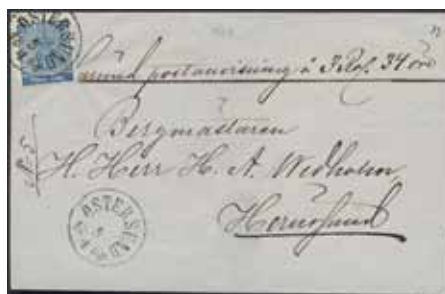 ÖSTERSUND
med postanvisning å 3 Rdr. 34 öre
Bergmästaren
H. Herr H. A. Wedholm
Hernösand
ÖSTERSUND